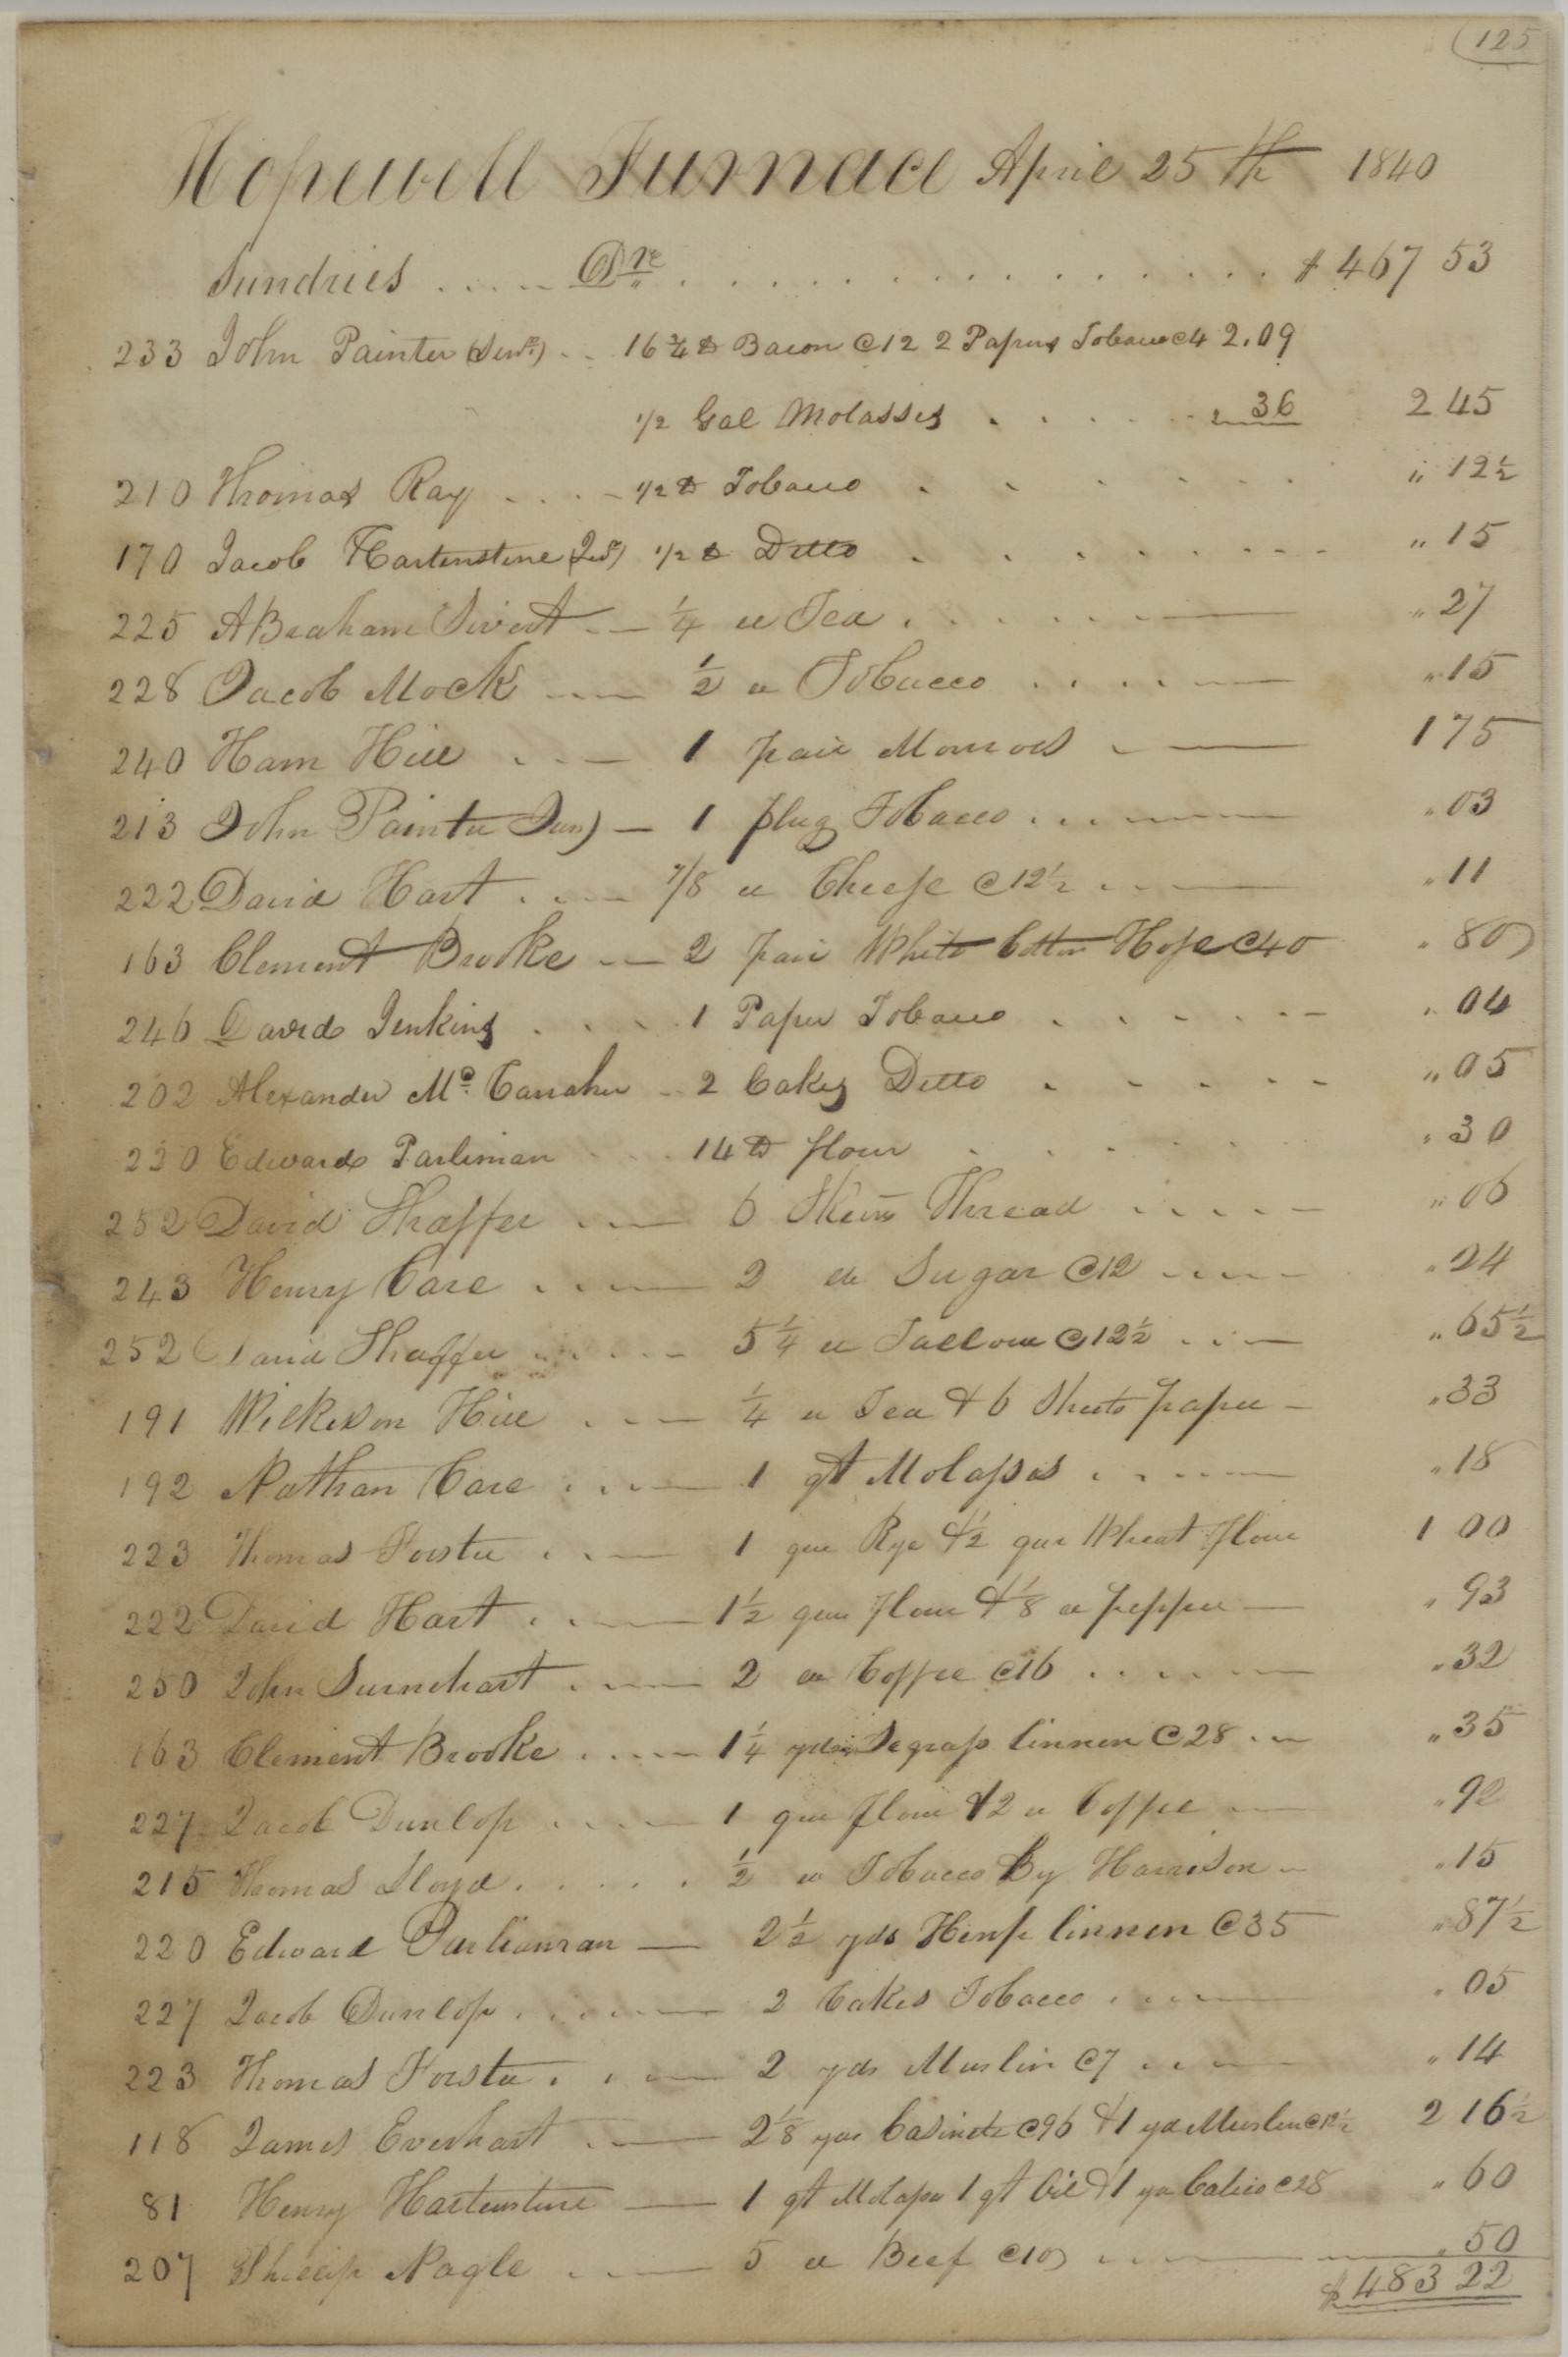 125
Hopewell Furnace April 25th 1840
Sundries .... Drs ............ $ 467 53
233 John Painter (Senr.) .. 16 3/4 lb Bacon @ 12 2 Papers Tobacco @ 4 2.09
1/2 Gal Molasses ..... " 36 2 45
210 Thomas Ray .... 1/2 lb Tobacco ...... " 12 1/2
170 Jacob Hartenstine (Jur) 1/2 lb Ditto ........ " 15
225 ABraham Sivert .. — 1/4 " Tea ...... — " 27
228 Jacob Mock .... — 1/2 " Tobacco ..... — " 15
240 Ham Hill ... — 1 pair Monroes . — 1 75
213 John Painter Jun) — 1 plug Tobacco .... — " 03
222 David Hart .... — 7/8 " Cheese @ 12 1/2 ... — " 11
163 Clement Brooke .. — 2 pair White Cotton Hose @ 40 " 80
246 David Jenkins .... 1 Paper Tobacco ...... " 04
202 Alexander Mc. Canaher .. 2 Cakes Ditto ..... " 05
220 Edward Parliman ... 14 lb flour ..... " 30
252 David Shaffer ... — 6 Skeins Thread ..... " 06
243 Henry Care .... — 2 " Sugar @ 12 .... " 24
252 David Shaffer ...... 5 1/4 " Tallow @ 12 1/2 ... — " 65 1/2
191 Wilkeson Hill ... — 1/4 " Tea & 6 Sheets paper — " 33
192 Nathan Care .... — 1 qt Molasses .... — " 18
223 Thomas Forster ... — 1 qur Rye & 1/2 qur Wheat Flour 1 00
222 David Hart ... — 1 1/2 qur Flour & 1/8 " pepper — " 93
250 John Surnehart ... — 2 " Coffee @ 16 ..... — " 32
163 Clement Brooke .... — 1 1/4 yds Segrass linnen @ 28 .. — " 35
227 Jacob Dunlop .... — 1 qur flour & 2 " Coffee — " 92
215 Thomas Lloyd ...... 1/2 " Tobacco By Harrison — " 15
220 Edward Parlianman — 2 1/2 yds Hemp linnen @ 35 " 87 1/2
227 Jacob Dunlop ..... — 2 Cakes Tobacco ... — " 05
223 Thomas Forster ... — 2 yds Muslin @ 7 ... — " 14
118 James Everhart .. — 2 1/8 yds Casinetr @ 96 & 1 yd Muslin @ 12 1/2 2 16 1/2
81 Henry Hartenstine — 1 qt Molasses 1 qt Oil & 1 yd Calico @ 28 " 60
207 Phillip Nagle ... — 5 " Beef @ 10 ... — " 50
$ 483 22